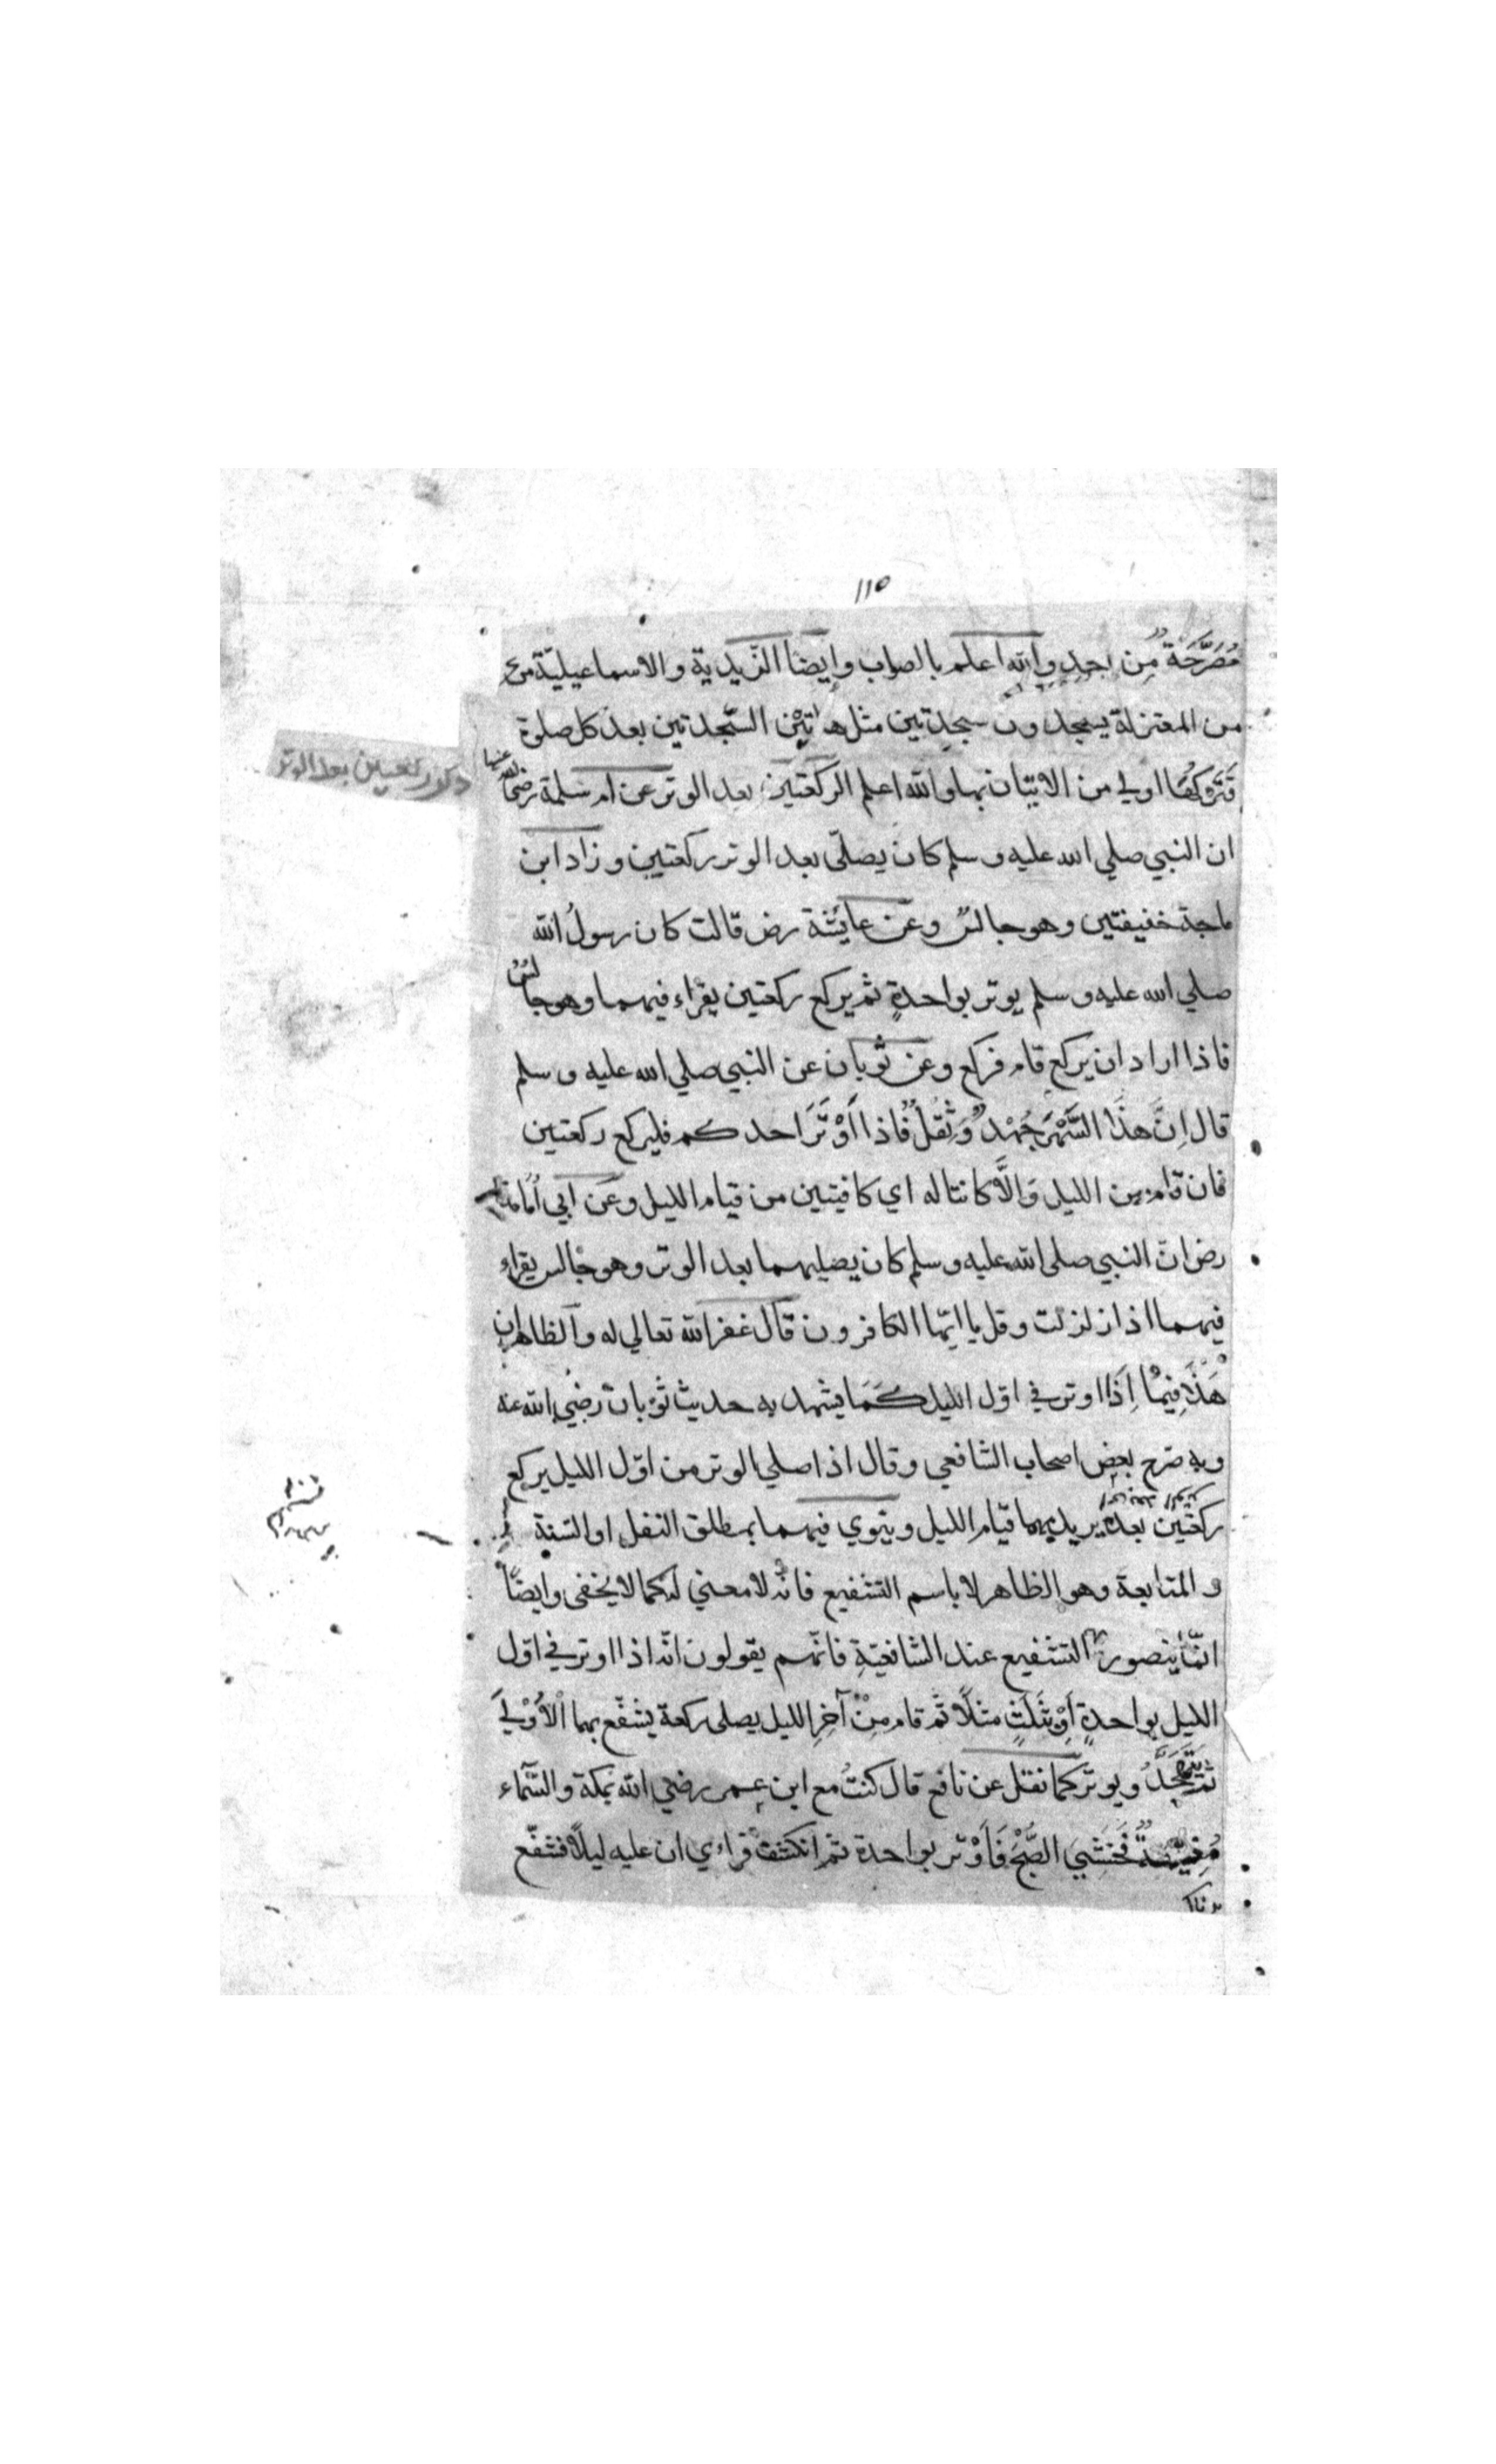 ١١٥
مُصَرَّحَةٌ مِن احدٍ والله اعلم بالصواب وايضا الزيدية والاسماعيلية
من المعتزلة يسجدون سجدتين مثل هاتين السّجدتين بعد كل صلوة
فتركها اولي من الاتيان بها والله اعلم الركعتين بعد الوتر عن ام سلمة رضي الله عنها
ذكر ركعتين بعد الوتر
ان النبي صلي الله عليه وسلم كان يصلّي بعد الوتر ركعتين وزاد ابن
ماجة خفيفتين وهو جالس وعن عايشة رض قالت كان رسولُ الله
صلي الله عليه وسلم يوتر بواحدةٍ ثم يركع ركعتين يقراء فيهما وهو جالسٌ
فاذا اراد ان يركع قام فركع وعن ثوبان عن النبي صلي الله عليه وسلم
قال اِنَّ هذَا السَّهَرَ جُهْدٌ وَثِقَلٌ فاذا اَوْتَرَ احدكم فليركع ركعتين
فان قام من الليل وَالَّا كانتا له اي كافيتين من قيام الليل وعن ابي اُمامة
رض ان النبي صلي الله عليه وسلم كان يصليهما بعد الوتر وهو جالس يقراء
فيهما اذا زلزلت وقل يا ايّها الكافرون قال غفر الله تعالي له والظاهر ان
هَذَا فِيْمَا اِذَا اوتر في اوّل الليل كَمَا يشهد به حديث ثوْبان رضي الله عنه
وبه صرح بعض اصحاب الشافعي وقال اذا صلي الوتر من اوّل الليل يركع
ركعتين بعده يريد بهما قيام الليل وينوي فيهما بمطلق النفل او السّنة
والمتابعة وهو الظاهر لا باسم التشفيع فانّه لا معني له كما لا يخفي وايضًا
انّما يتصور التشفيع عند الشافعيّة فانّهم يقولون انّه اذا اوتر في اوّل
الليل بواحدةٍ اَوْ ثَلَثٍ مثلًا ثم قام مِنْ آخِرِ الليل يصلي ركعة يشفّع بها الْاُوْليَ
ثم يَتَهَجَّدُ ويوتر كما نقل عن نافع قال كنتُ مع ابن عمر رضي الله بمكة والسّماء
فَخَشِيَ الصُّبْحَ فَاَوْتر بواحدة ثم انكشف فراءي ان عليه ليلًا فشفّع